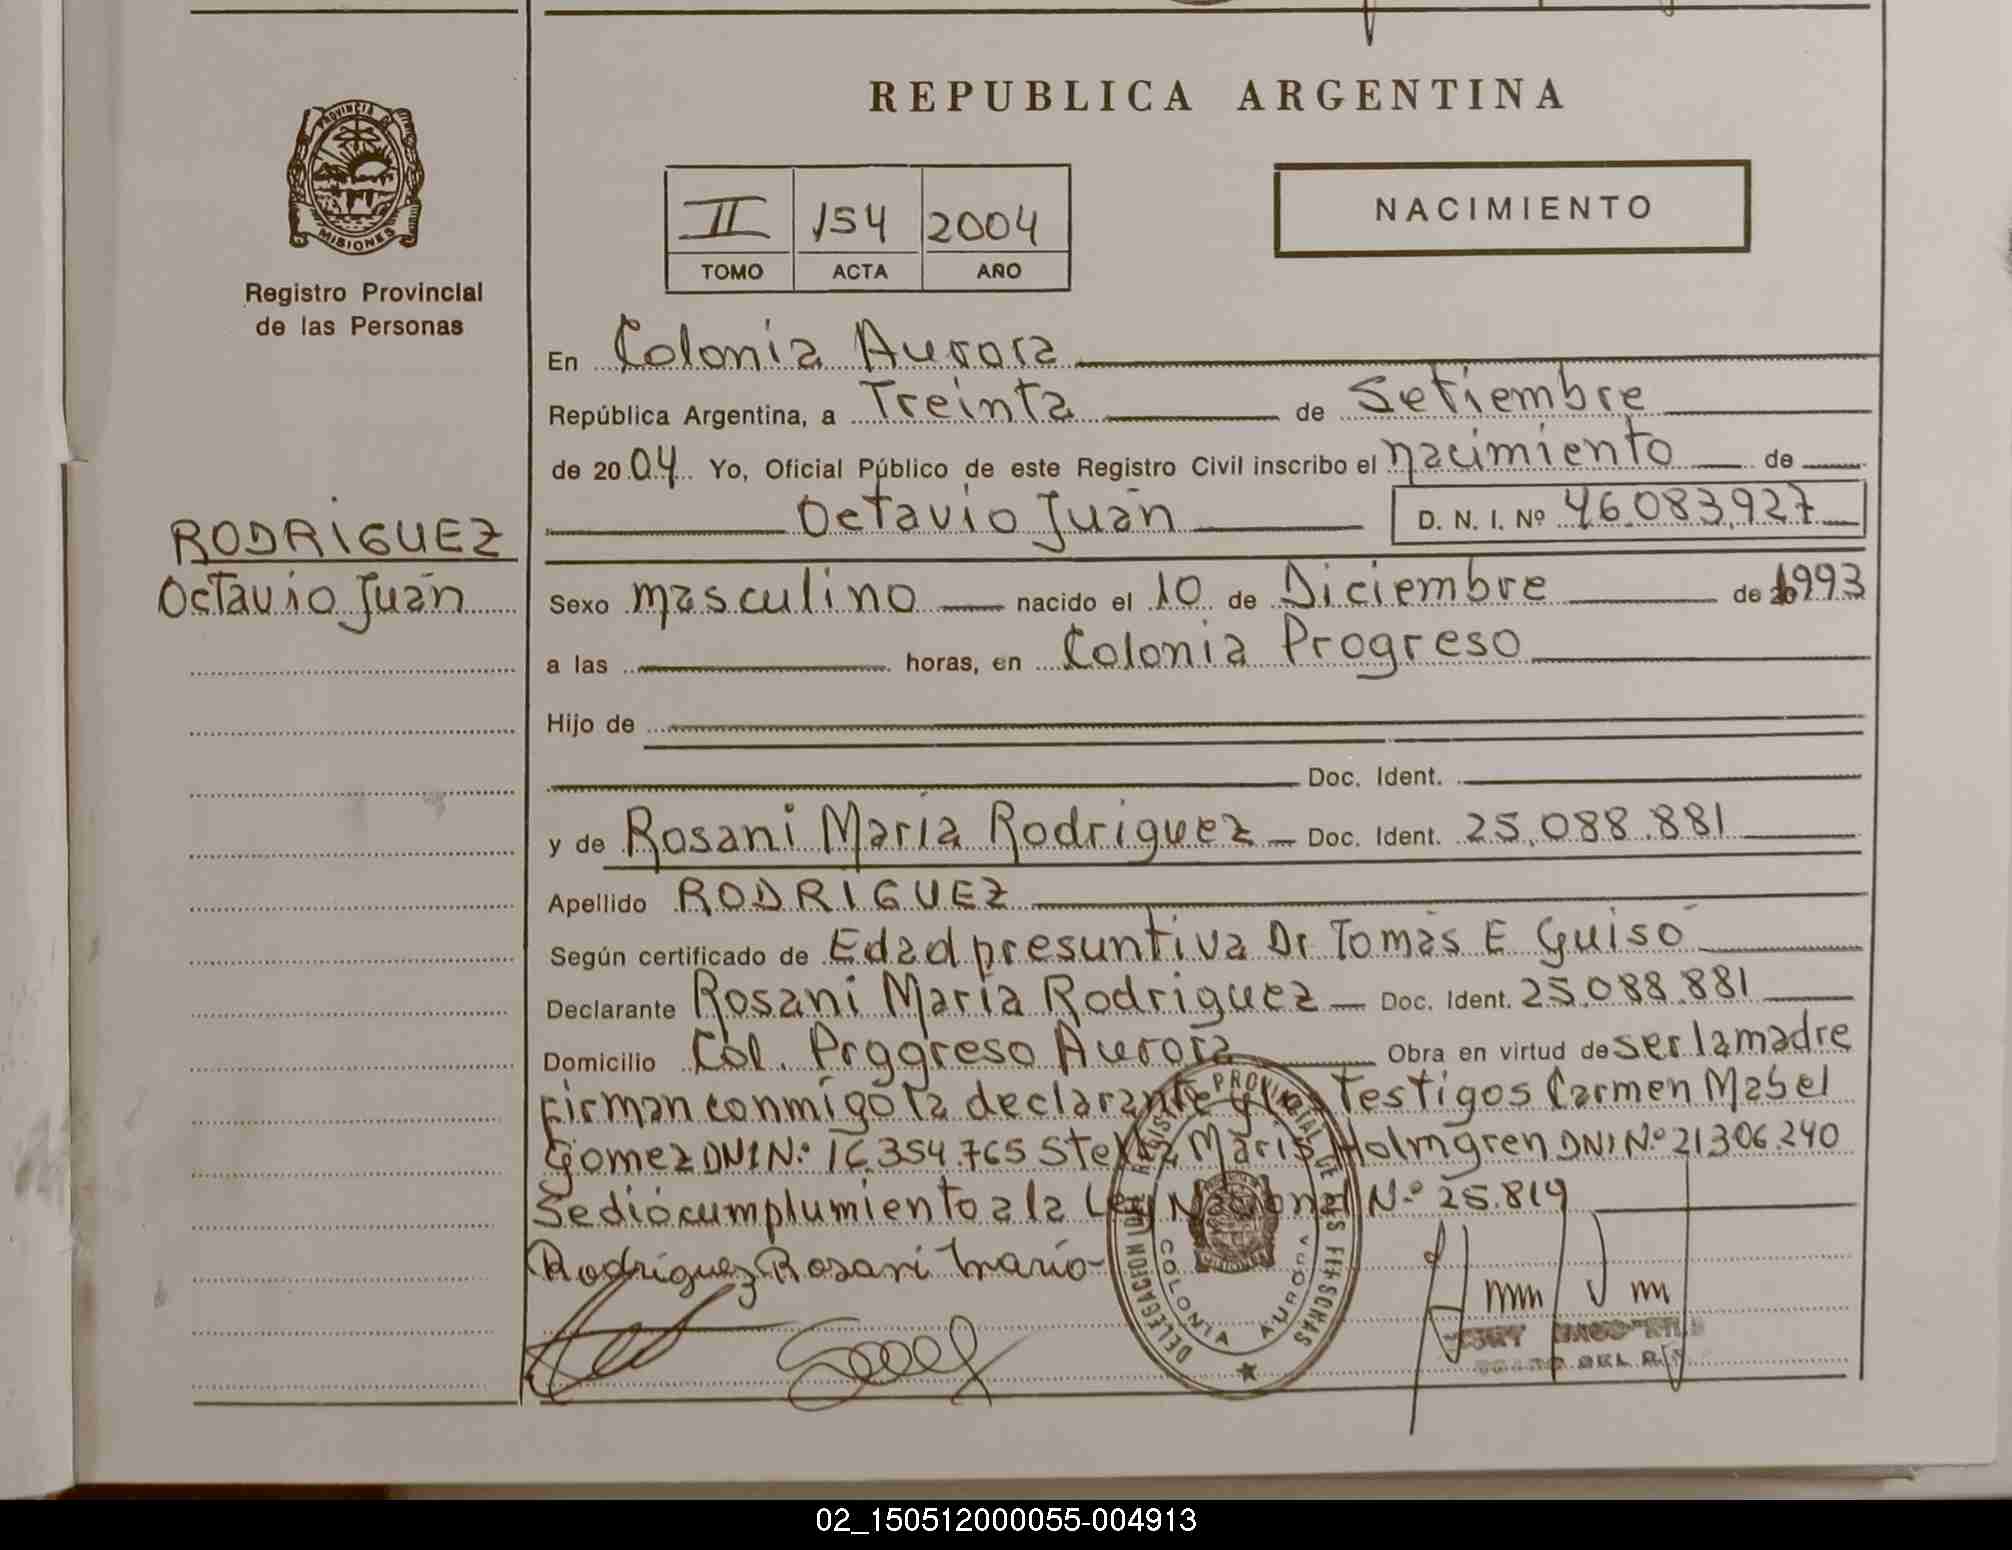 REPUBLICA ARGENTINA
PROVINCIA DE
MISIONES
Registro Provincial
de las Personas
II 154 2004
TOMO ACTA AÑO
NACIMIENTO
En Colonia Aurora
República Argentina, a Treinta de Setiembre
de 2004 Yo, Oficial Público de este Registro Civil inscribo el nacimiento de
Octavio Juán D. N. I. Nº 46.083.927
RODRIGUEZ
Octavio Juán
Sexo masculino nacido el 10 de Diciembre de 1993
a las horas, en Colonia Progreso
Hijo de
Doc. Ident.
y de Rosani María Rodriguez Doc. Ident. 25.088.881
Apellido RODRIGUEZ
Según certificado de Edad presuntiva Dr Tomás E Guiso
Declarante Rosani María Rodriguez Doc. Ident. 25.088.881
Domicilio Col. Progreso Aurora Obra en virtud de ser la madre
Firman conmigo la declarante y los Testigos Carmen Mabel
Gomez DNI Nº 16.354.765 Stella Maris Holmgren DNI Nº 21306.240
Se dió cumplumiento a la Ley Nacional Nº 25.819
Rodríguez Rosani María
DELEGACION REGISTRO PROVINCIAL DE LAS PERSONAS
COLONIA AURORA
02_150512000055-004913